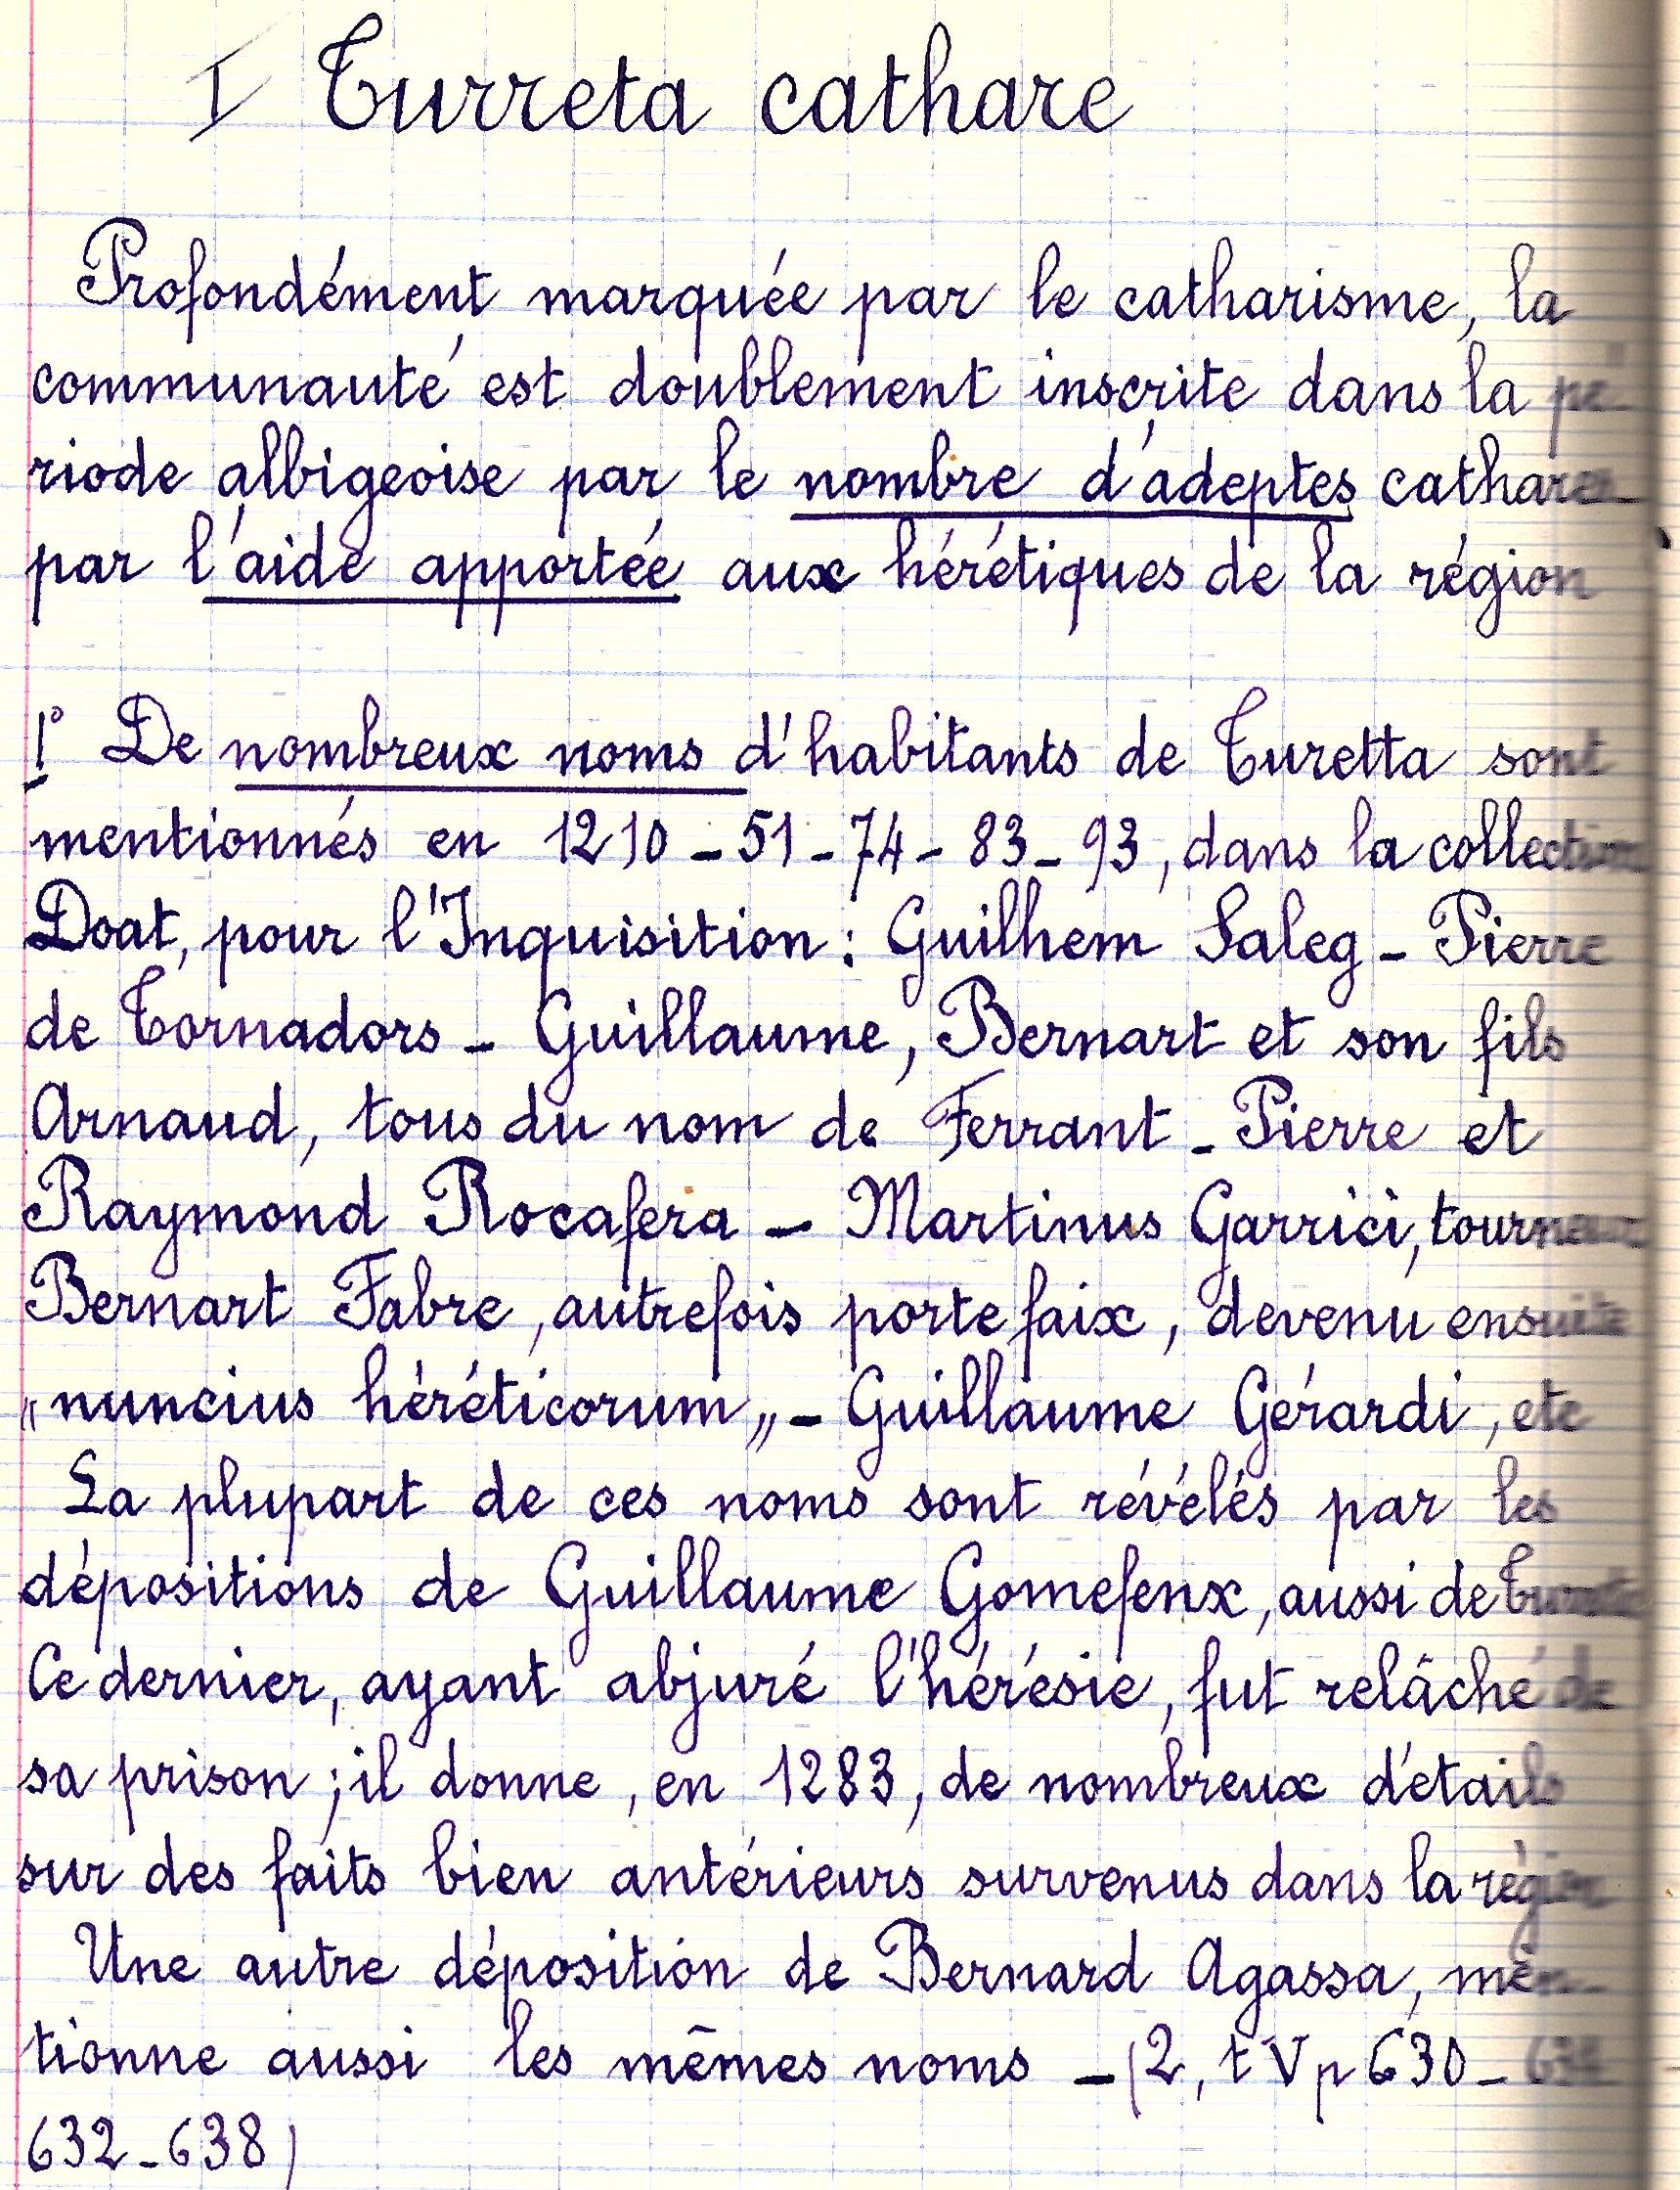 I Turreta cathare
Profondément marquée par le catharisme, la
communauté est doublement inscrite dans la pé
riode albigeoise par le nombre d'adeptes cathares
par l'aide apportée aux hérétiques de la région
1° De nombreux noms d'habitants de Turetta sont
mentionnés en 1210 - 51 - 74 - 83 - 93, dans la collection
Doat, pour l'Inquisition : Guilhem Saleg - Pierre
de Tornadors - Guillaume, Bernart et son fils
Arnaud, tous du nom de Ferrant - Pierre et
Raymond Rocafera - Martinus Garrici, tourneur
Bernart Fabre, autrefois portefaix, devenu ensuite
"nuncius héréticorum" - Guillaume Gérardi, etc
La plupart de ces noms sont révélés par les
dépositions de Guillaume Gomefenx, aussi de
Ce dernier, ayant abjuré l'hérésie, fut relâché de
sa prison ; il donne, en 1283, de nombreux détails
sur des faits bien antérieurs survenus dans la région
Une autre déposition de Bernard Agassa, men-
tionne aussi les mêmes noms - (2, t V p 630 -
632 - 638)